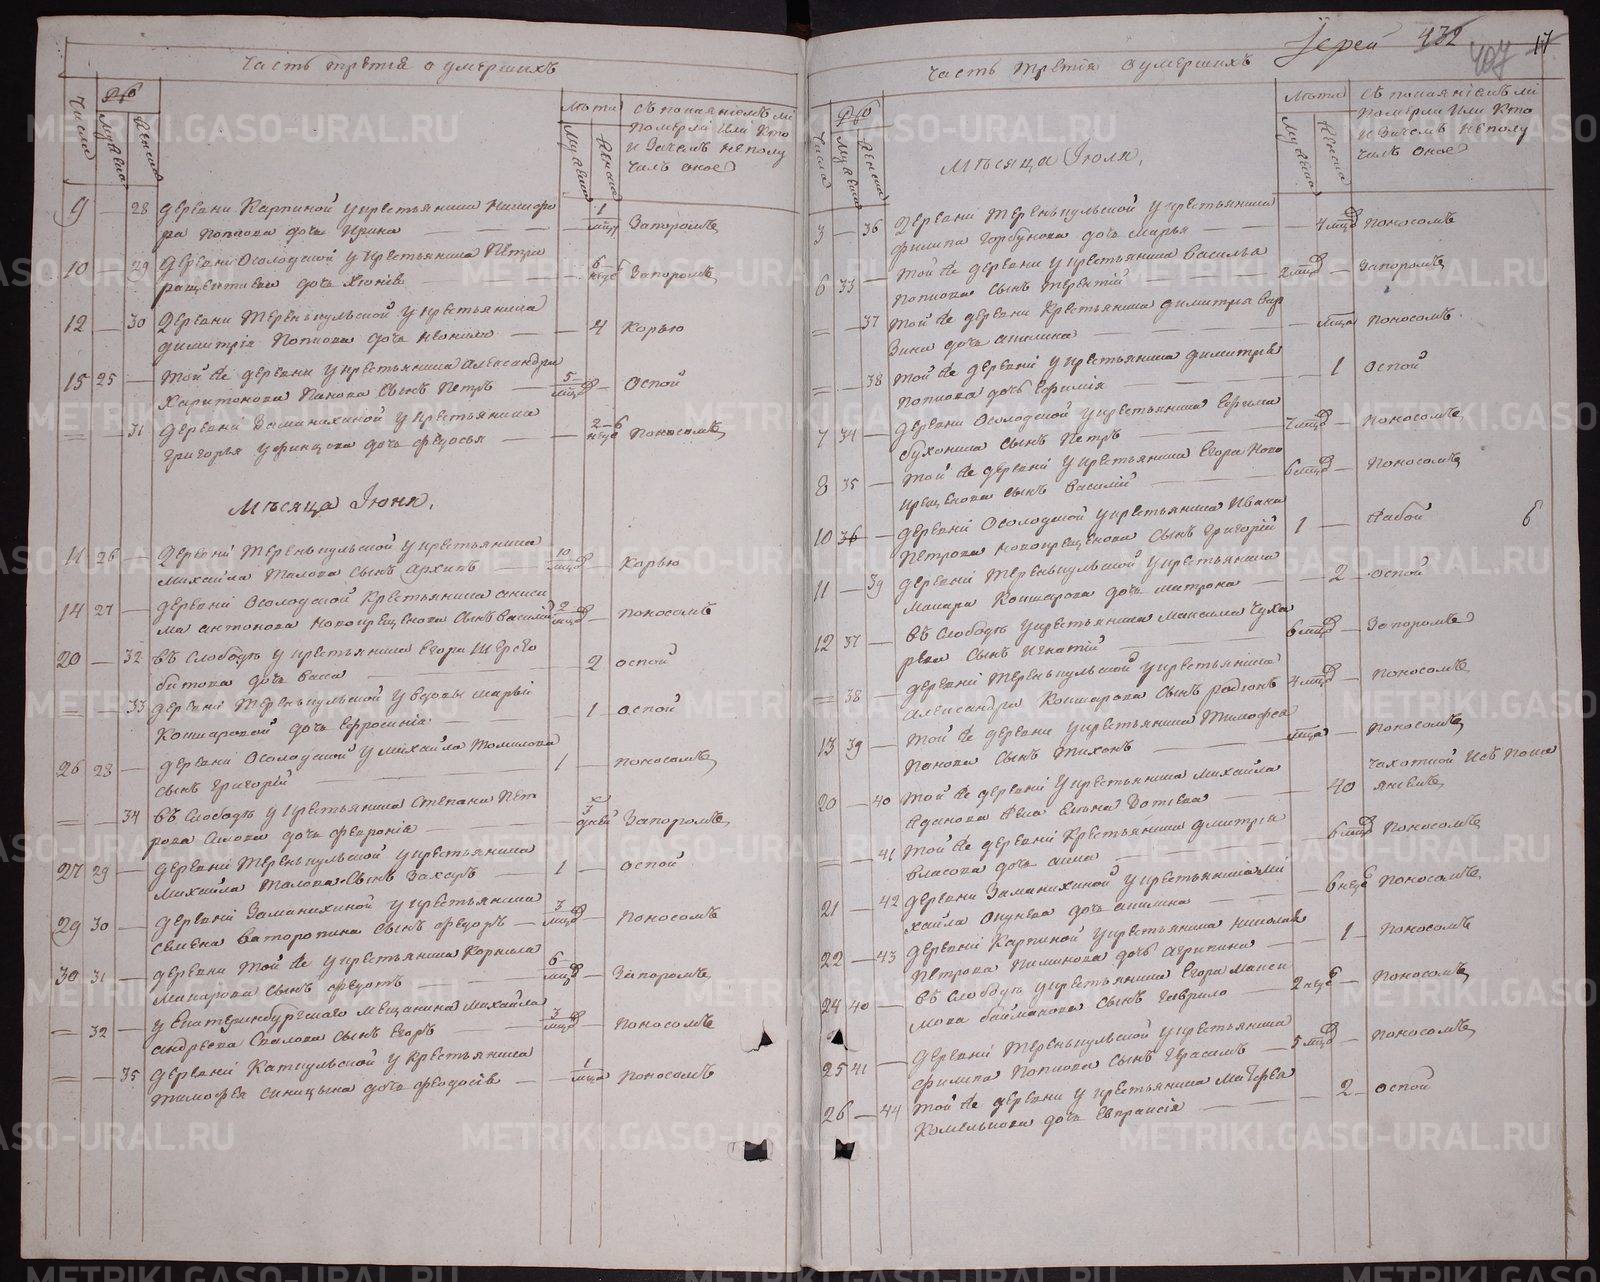 Часть третiя о умершихъ
Числа
Мужеска
Женска
Лѣта
Мужеска
Женска
Съ покаянiемъ ли
Померли или кто
и зачемъ неполу
чилъ оное
9 — 28 деревни Карпиной у крестьянина Никифо
ра Попкова дочь Ирина — 1 мцъ Запоромъ
10 — 29 деревни Осолодской у крестьянина Петра
дочь — 6 неде Запоромъ
12 — 30 деревни Теренькульской у крестьянина
димитрiя Попкова дочь Неонила — 4 Корью
15 25 — той же деревни у крестьянина Александра
Харитонова Панова сынъ Петръ — 5 мцо — оспой
= — 31 деревни Заманихиной у крестьянина
григорья дочь федосья — 2-6 неде Поносомъ
Мѣсяца Iюня.
11 26 — деревнi Теренькульской у крестьянина
Михайла Талова сынъ Архипъ — 10 мцо — Корью
14 27 — деревнi Осолодской крестьянина аниси
ма антонова новокрещенова сынъ василiй 2 мцо — поносомъ
20 — 32 въ Слободѣ у крестьянина Егора Щерсто
битова дочь васа — 2 оспой
= — 33 деревнi Теренькульской у вдовы марьи
Кошкаровой дочь Ефросинiя — 1 оспой
26 28 — деревни Осолодской у Михайла Томилова
сынъ григорiй — 1 — поносомъ
= — 34 въ Слободѣ у крестьянина Степана Пет
рова дочь февронiя — 3 дней Запоромъ
27 29 — деревнi Теренькульской у крестьянина
Михайла Талова сынъ Захаръ — 1 — оспой
29 30 — деревнi Заманихиной у крестьянина
Семена Ваторопина сынъ федоръ — 3 мцо — поносомъ
30 31 — деревни той же у крестьянина Корнила
Макарова сынъ федотъ — 6 мцо — Запоромъ
= 32 — у Екатеринбургскаго мещанина Михайла
андреева сынъ Егоръ — 3 мцо — поносомъ
= — 35 деревнi Каткульской у крестьянина
тимофея синицына дочь феодосiя — 1 мца поносомъ
Iерей 432 407 17
Часть третiя о умершихъ
Числа
Мужеска
Женска
Лѣта
Мужеска
Женска
Съ покаянiемъ ли
Померли или кто
и зачемъ неполу
чилъ оное
Мѣсяца Iюля.
3 — 36 деревни Теренькульской у крестьянина
филипа Горбунова дочь марья — 4 мцо поносомъ
6 33 — той же деревни у крестьянина василья
Попкова сынъ терентiй — 2 мцо — Запоромъ
= — 37 той же деревни крестьянина димитрiя вар
дочь — мца поносомъ
= — 38 той же деревнi у крестьянина димитрiя
Попкова дочь Ефимiя — 1 оспой
7 34 — деревни Осолодской у крестьянина
сынъ Петръ — 7 мцо — поносомъ
8 35 — той же деревнi у крестьянина Егора Ново
крещенова сынъ василiй — 6 мцо — поносомъ
10 36 — деревнi Осолодской у крестьянина Ивана
Петрова новокрещенова сынъ григорiй — 1 — жабой б
11 — 39 деревнi Теренькульской у крестьянина
макара Кошкарова дочь матрона — 2 оспой
12 37 — въ Слободѣ у крестьянина максима Чуха
рева сынъ игнатiй — 6 мцо — Запоромъ
= 38 — деревнi Теренькульской у крестьянина
александра Кошкарова сынъ родiонъ 4 мцо — поносомъ
13 39 — той же деревнi у крестьянина тимофея
Панова сынъ тихонъ — мца — поносомъ
20 — 40 той же деревнi у крестьянина михайла
Жданова жена — 40 чахоткой исъ пока
янiемъ
= — 41 той же деревнi крестьянина дмитрiя
власова дочь анна — 6 мцо поносомъ
21 — 42 деревни Заманихиной у крестьянина Ми
хайла Окунева дочь акилина — 6 неде поносомъ
22 — 43 деревнi Карпиной у крестьянина николая
Петрова Пиминова дочь агрипина — 1 — поносомъ
24 40 — въ Слободѣ у крестьянина Егора макси
мова байманова сынъ Гаврило — 2 неде — поносомъ
25 41 — деревнi Теренькульской у крестьянина
филипа Попкова сынъ Герасимъ — 5 мцо — поносомъ
26 — 44 той же деревни у крестьянина Матфея
Комелькова дочь Евпраксiя — 2 — оспой